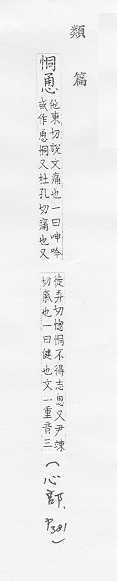 類篇
恫恿
他東切說文痛也一曰呻吟
或作恿恫又杜孔切痛也又
徒弄切惚恫不得志恿又尹竦
切氣也一曰健也文一重音三
(心部、P381)